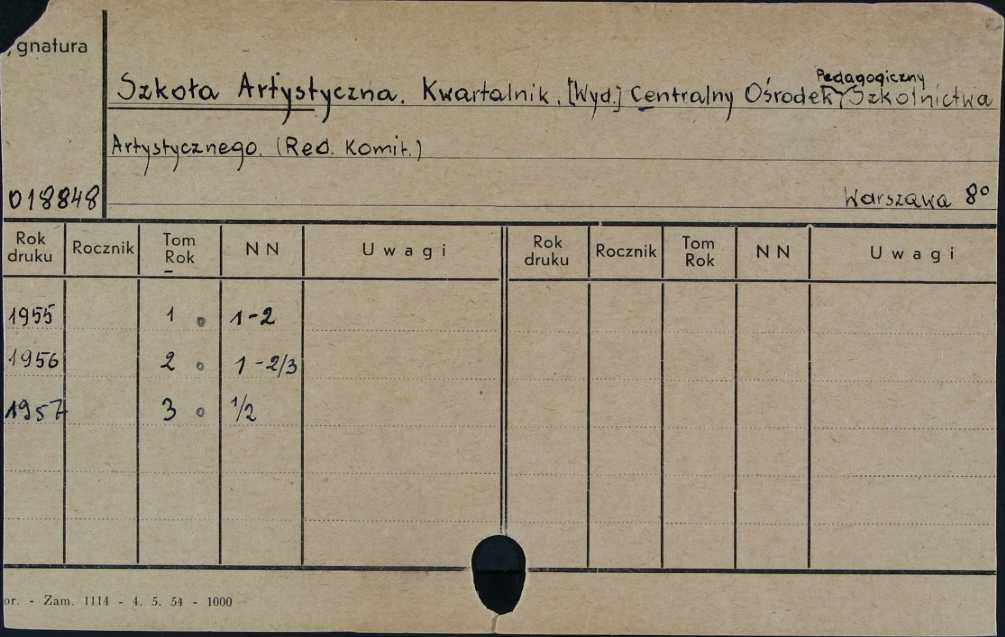 gnatura
Szkoła Artystyczna. Kwartalnik. [Wyd.] Centralny Ośrodek Pedagogiczny Szkolnictwa
Artystycznego. (Red. Komit.)
018848
Warszawa 8°
Rok druku Rocznik Tom Rok NN Uwagi Rok druku Rocznik Tom Rok NN Uwagi
1955 1 1-2
1956 2 1-2/3
1957 3 1/2
or. - Zam. 1114 - 4. 5. 54 - 1000